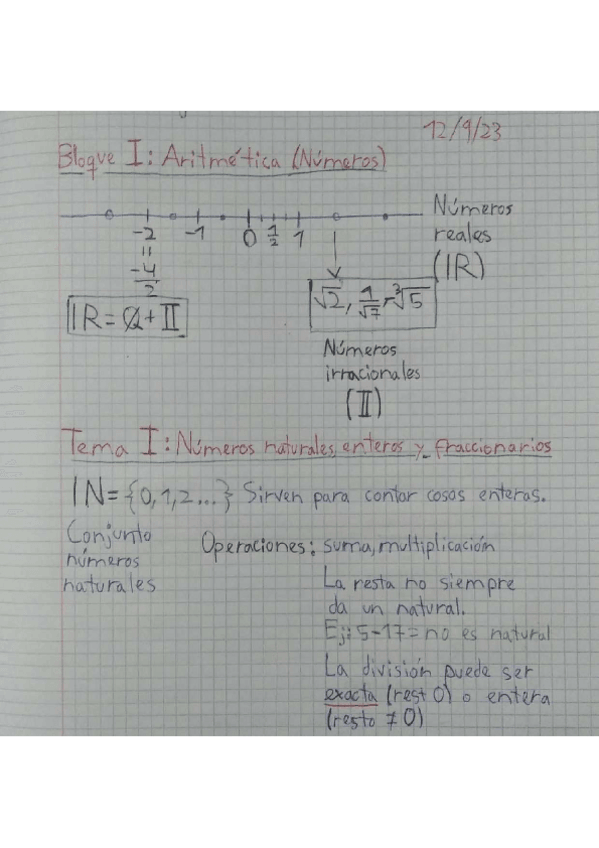 12/9/23
Bloque I: Aritmética (Números)
Números
reales
(IR)
-2 -1 0 1/2 1
=
-4/2
IR = Q + II
√2, 1/√7, -³√5
Números
irracionales
(II)
Tema I: Números naturales, enteros y fraccionarios
IN = {0,1,2...} Sirven para contar cosas enteras.
Conjunto
números
naturales
Operaciones: suma, multiplicación
La resta no siempre
da un natural.
Ej: 5-17= no es natural
La división puede ser
exacta (rest 0) o entera
(resto ≠ 0)